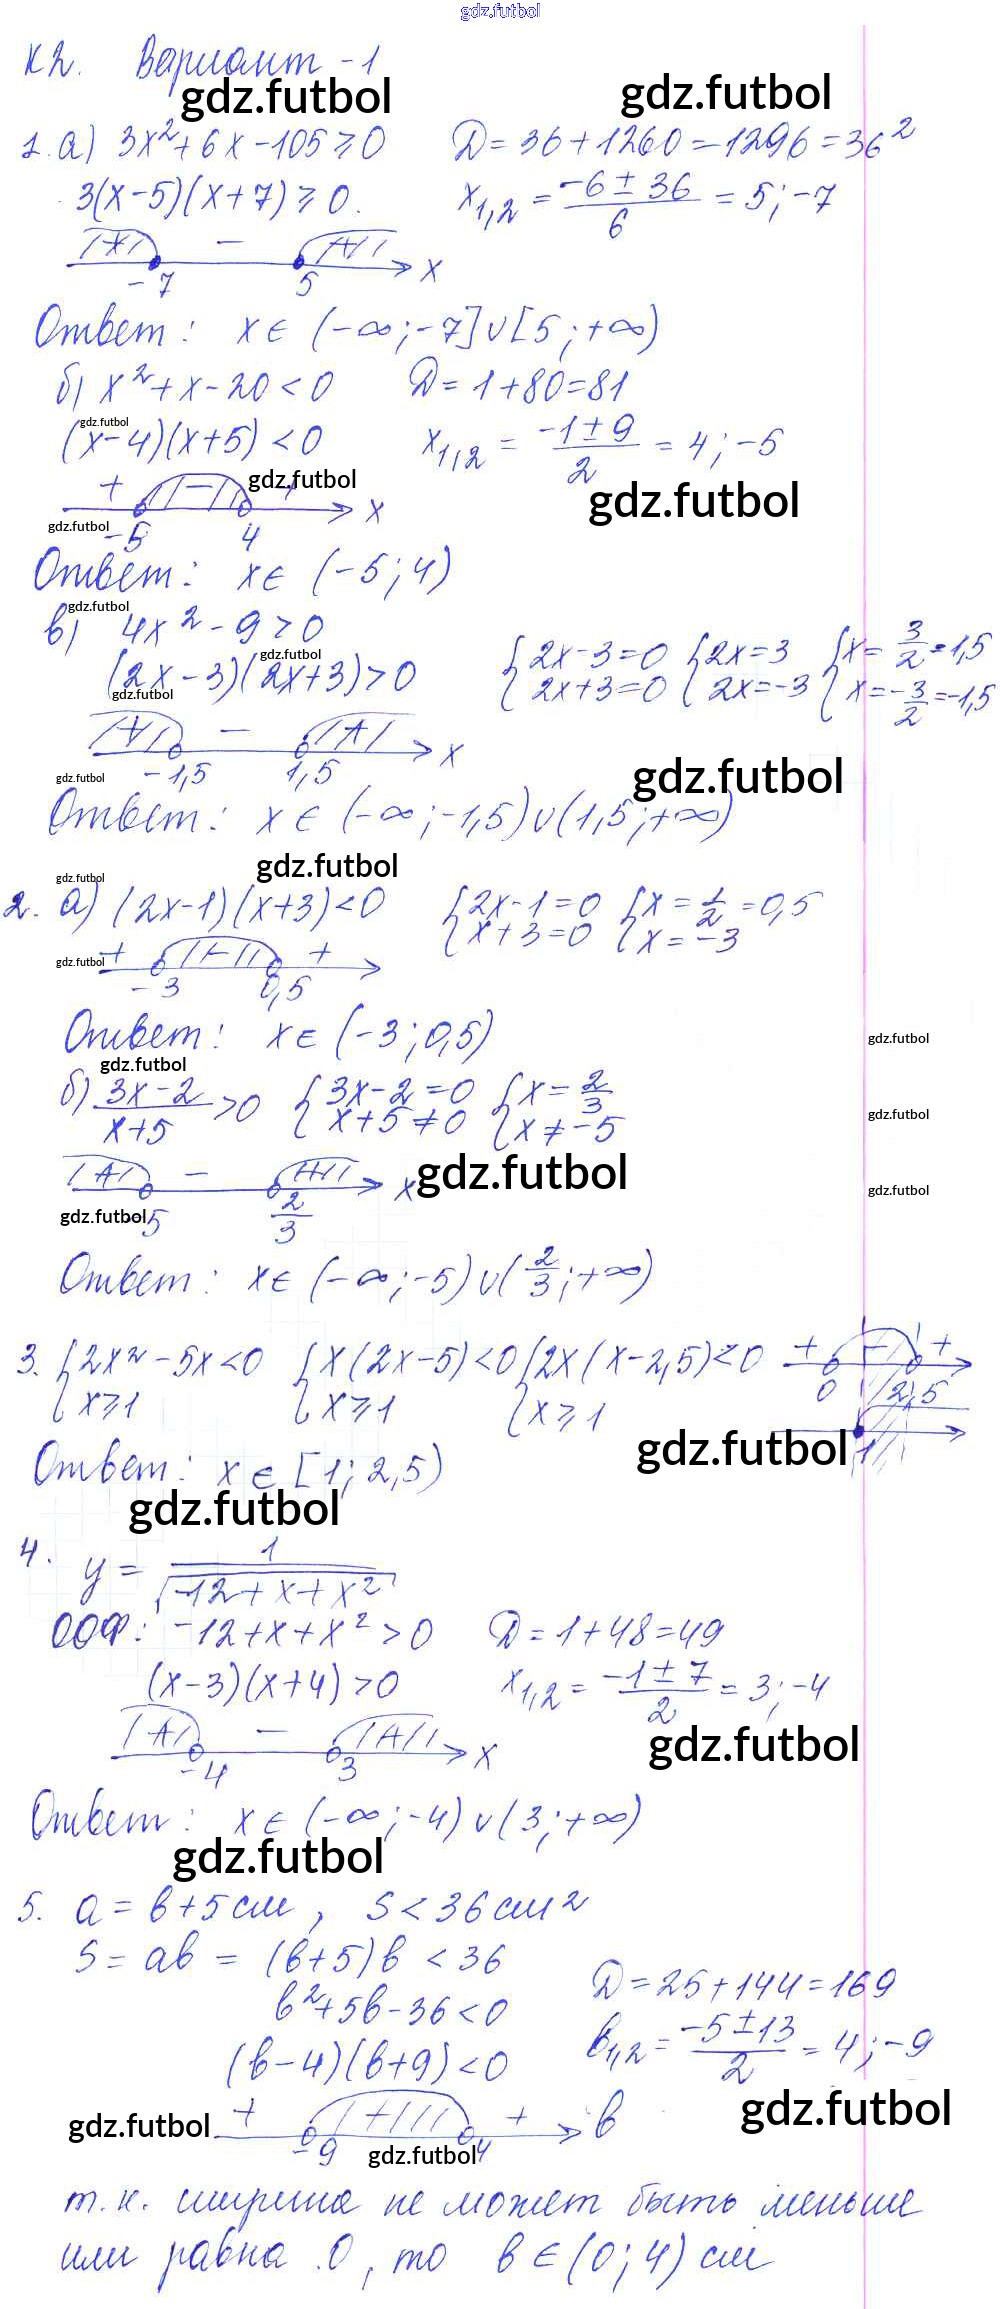 gdz.futbol
К2. Вариант -1
gdz.futbol gdz.futbol
1. а) 3x²+6x-105≥0 D=36+1260=1296=36²
3(x-5)(x+7)≥0. x₁,₂ = (-6±36)/6 = 5; -7
+ - + x
-7 5
Ответ: x∈ (-∞;-7]∪[5;+∞)
б) x²+x-20<0 D=1+80=81
gdz.futbol
(x-4)(x+5)<0 x₁,₂ = (-1±9)/2 = 4; -5
+ - + x
gdz.futbol gdz.futbol
gdz.futbol -5 4
Ответ: x∈ (-5;4)
gdz.futbol
в) 4x²-9>0
gdz.futbol
(2x-3)(2x+3)>0 {2x-3=0 {2x=3 {x=3/2=1,5
2x+3=0 2x=-3 x=-3/2=-1,5
gdz.futbol
+ - + x
gdz.futbol -1,5 1,5 gdz.futbol
Ответ: x∈ (-∞;-1,5)∪(1,5;+∞)
gdz.futbol
gdz.futbol
2. а) (2x-1)(x+3)<0 {2x-1=0 {x=1/2=0,5
x+3=0 x=-3
gdz.futbol + - +
-3 0,5
Ответ: x∈ (-3;0,5)
gdz.futbol
gdz.futbol
б) (3x-2)/(x+5)>0 {3x-2=0 {x=2/3
x+5≠0 x≠-5
gdz.futbol
+ - + x gdz.futbol
gdz.futbol
gdz.futbol -5 2/3
Ответ: x∈ (-∞;-5)∪(2/3;+∞)
3. {2x²-5x<0 {x(2x-5)<0 {2x(x-2,5)<0 + - +
x≥1 x≥1 x≥1 0 2,5
gdz.futbol 1
Ответ: x∈ [1;2,5)
gdz.futbol
4. y= 1/√(-12+x+x²)
ООФ: -12+x+x²>0 D=1+48=49
(x-3)(x+4)>0 x₁,₂ = (-1±7)/2 = 3; -4
+ - + x gdz.futbol
-4 3
Ответ: x∈ (-∞;-4)∪(3;+∞)
gdz.futbol
5. a=b+5см, S<36см²
S=ab=(b+5)b<36
b²+5b-36<0 D=25+144=169
(b-4)(b+9)<0 b₁,₂ = (-5±13)/2 = 4; -9
gdz.futbol + + + b gdz.futbol
-9 gdz.futbol 4
т.к. ширина не может быть меньше
или равна 0, то b∈(0;4) см